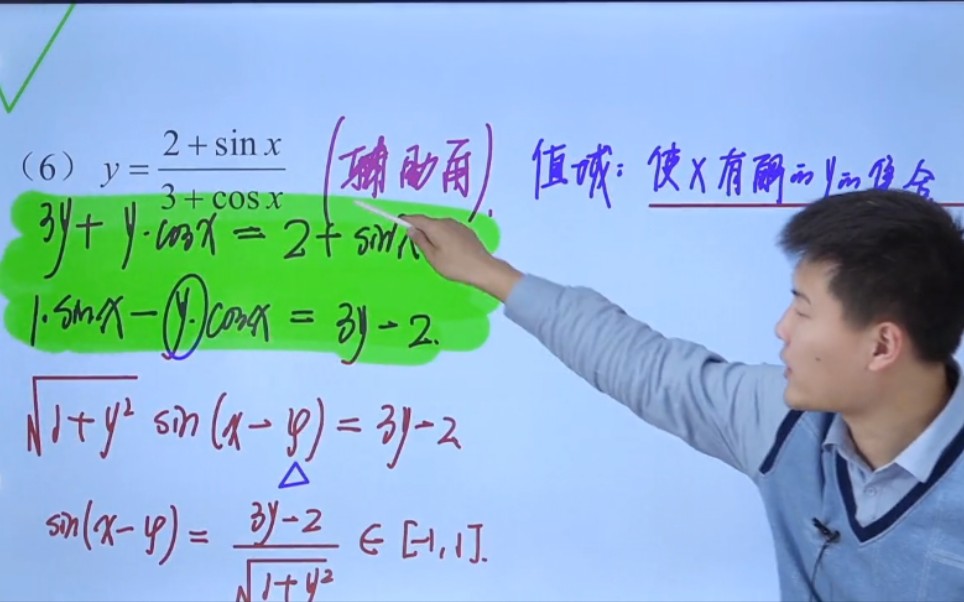 (6) y = \frac{2+\sin x}{3+\cos x} (辅助角). 值域: 使x有解的y的集合
3y + y·cosx = 2 + sinx
1·sinx − y·cosx = 3y − 2.
\sqrt{1+y^2} sin(x−φ) = 3y−2
sin(x−φ) = \frac{3y-2}{\sqrt{1+y^2}} ∈ [-1, 1].